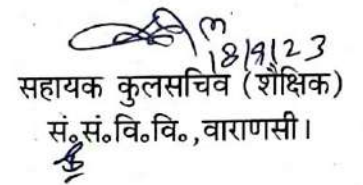 18/9/23
सहायक कुलसचिव (शैक्षिक)
सं०सं०वि०वि०,वाराणसी।